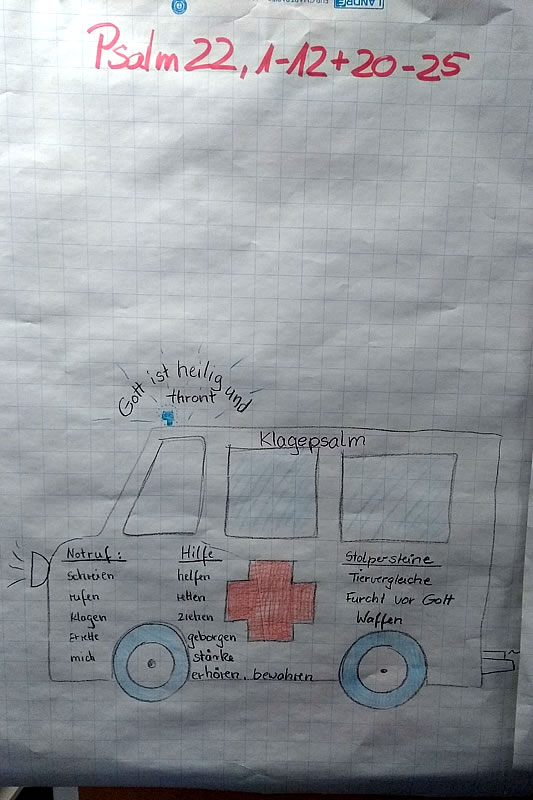 LANDRÉ
Psalm 22, 1-12 + 20-25
Gott ist heilig und
thront
Klagepsalm
Notruf:
schreien
rufen
klagen
Errette
mich
Hilfe
helfen
retten
ziehen
geborgen
stärke
erhören, bewahren
Stolpersteine
Tiervergleiche
Furcht vor Gott
Waffen